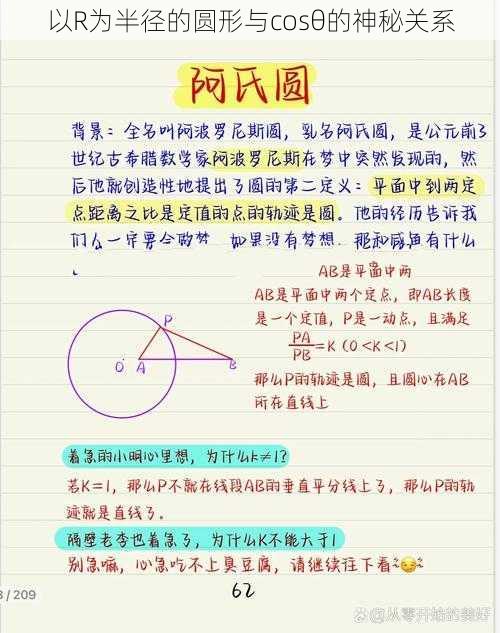 以R为半径的圆形与cosθ的神秘关系
阿氏圆
背景：全名叫阿波罗尼斯圆，乳名阿氏圆，是公元前3
世纪古希腊数学家阿波罗尼斯在梦中突然发现的，然
后他就创造性地提出了圆的第二定义：平面中到两定
点距离之比是定值的点的轨迹是圆。他的经历告诉我
们人一定要会做梦，如果没有梦想，那和咸鱼有什么
AB是平面中两
AB是平面中两个定点，即AB长度
是一个定值，P是一动点，且满足
PA/PB=K（0<K<1）
那么P的轨迹是圆，且圆心在AB
所在直线上
P
O A B
着急的小明心里想，为什么k≠1？
若K=1，那么P不就在线段AB的垂直平分线上了，那么P的轨
迹就是直线了。
隔壁老李也着急了，为什么K不能大于1
别急嘛，心急吃不上臭豆腐，请继续往下看~😏~
3/209
62
@从零开始的美好